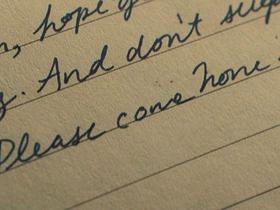 , hope
. And don't
Please come home.